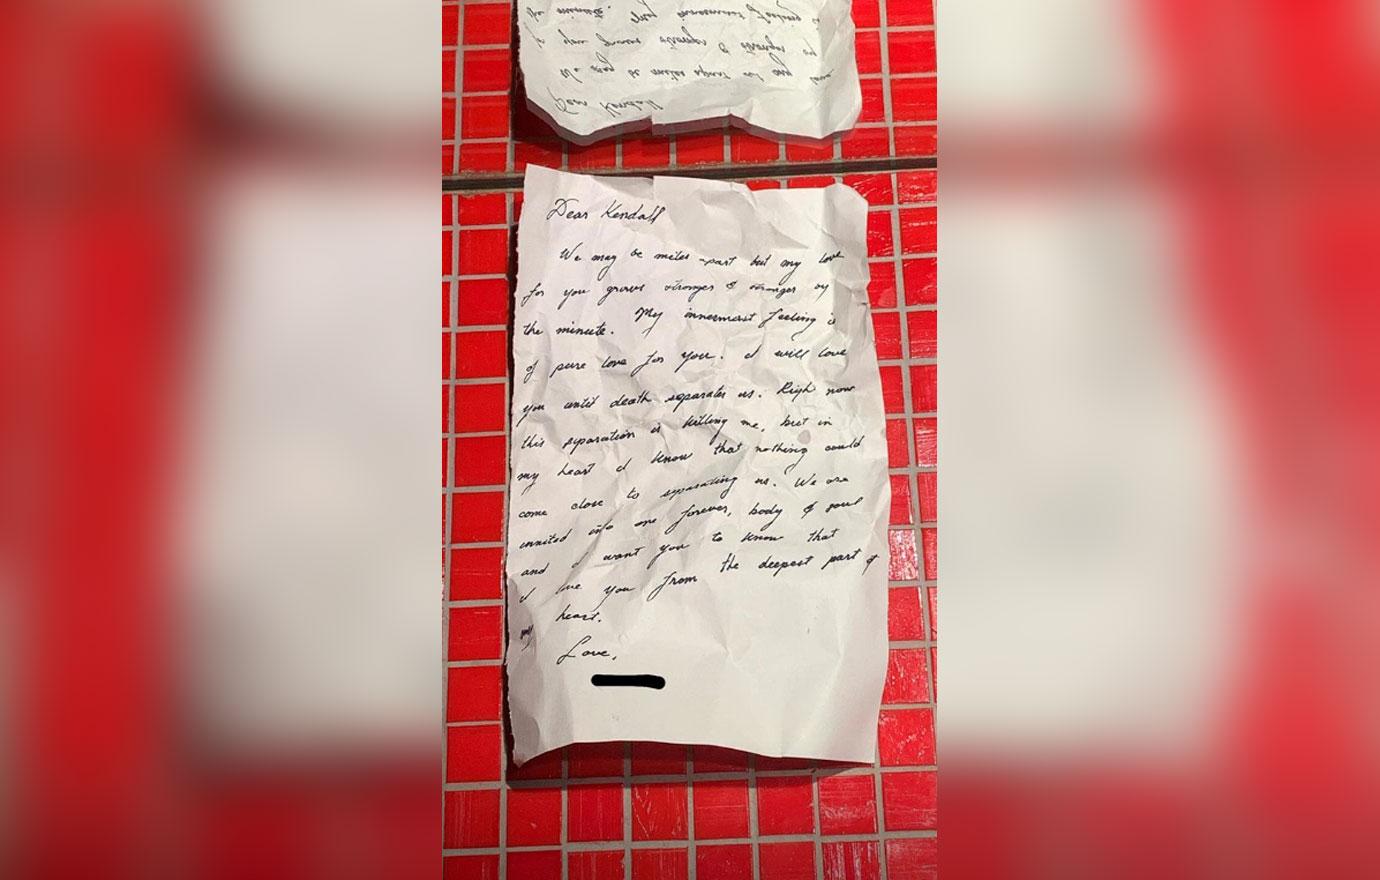 Dear Kendall
We may be miles apart but my love
for you grows stronger & stronger by
the minute. My innermost feeling is
of pure love for you. I will love
you until death separates us. Righ now
this separation is killing me, but in
my heart I know that nothing could
come close to separating us. We are
united into one forever, body & soul
and I want you to know that
I love you from the deepest part of
my heart.
Love,